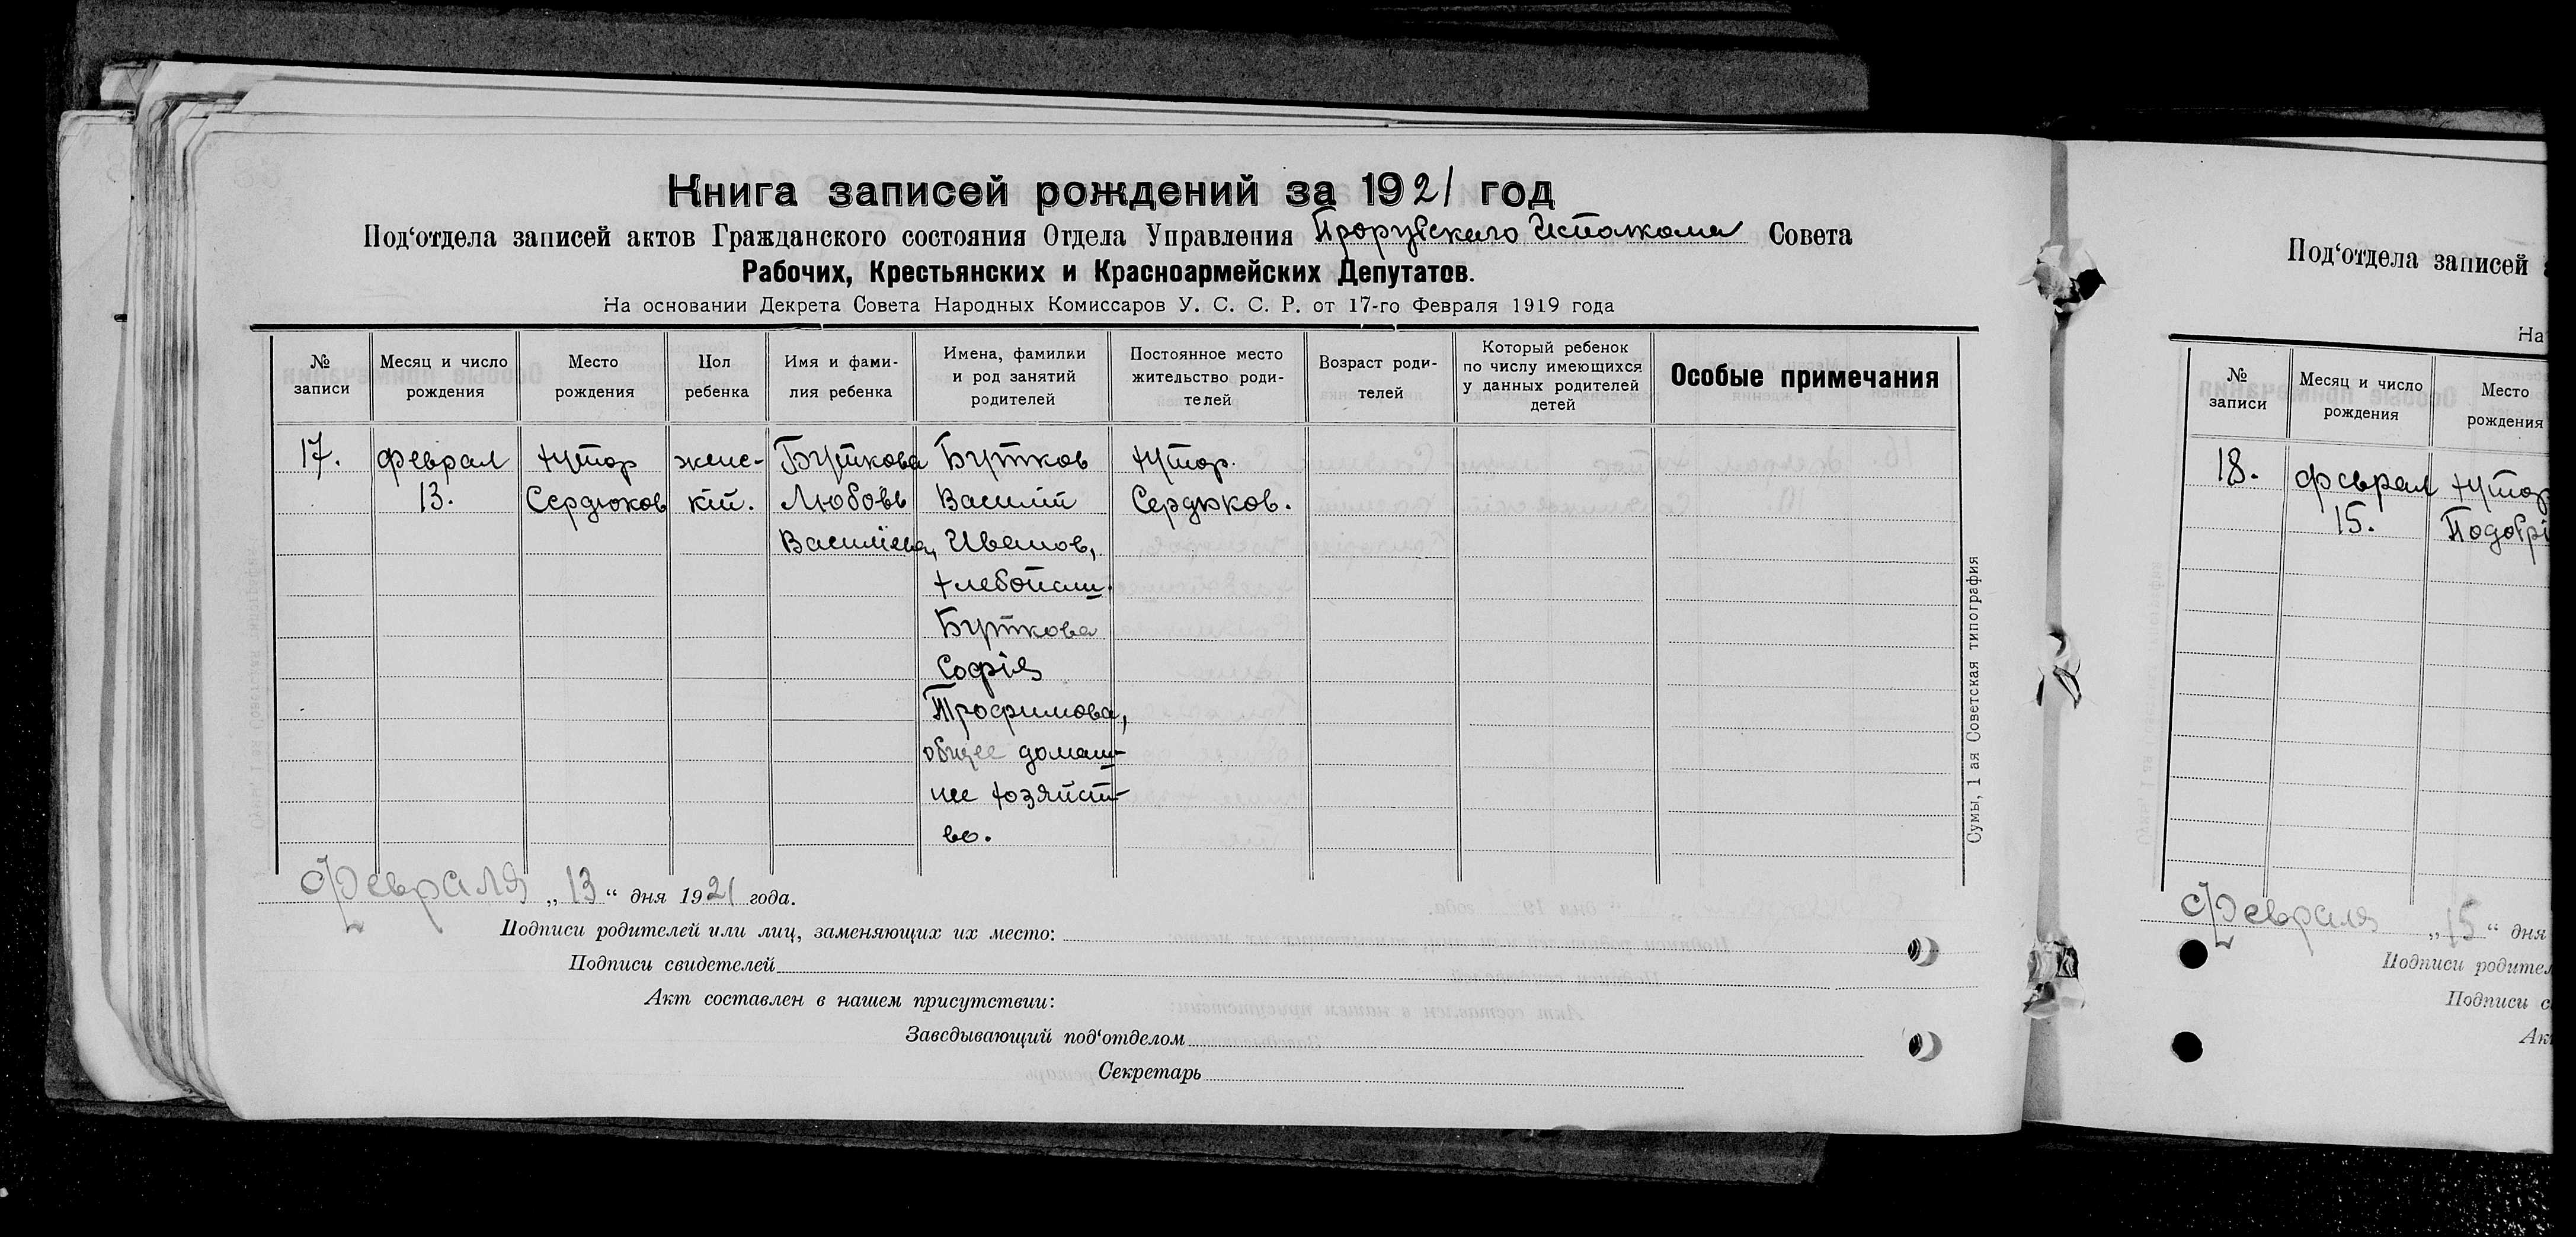 Книга записей рождений за 1921 год
Под‘отдела записей актов Гражданского состояния Отдела Управления Прорубского Исполкома Совета
Рабочих, Крестьянских и Красноармейских Депутатов.
На основании Декрета Совета Народных Комиссаров У. С. С. Р. от 17-го Февраля 1919 года
№ записи
Месяц и число рождения
Место рождения
Пол ребенка
Имя и фами-
лия ребенка
Имена, фамилии
и род занятий
родителей
Постоянное место
жительство роди-
телей
Возраст роди-
телей
Который ребенок
по числу имеющихся
у данных родителей
детей
Особые примечания
17.
феврал
13.
хутор
Сердюков
женс-
кій.
Буткова
Любовь
Василіева,
Бутков
Василій
Иванов,
хлебопаш.
Буткова
Софія
Трофимова,
общее домаш-
нее хозяйст-
во.
хутор.
Сердюков.
Февраля „13“ дня 1921 года.
Подписи родителей или лиц, заменяющих их место:
Подписи свидетелей
Акт составлен в нашем присутствии:
Заведывающий под‘отделом
Секретарь
Сумы, 1 ая Советская типография
Под‘отдела записей
На
№ записи
Месяц и число рождения
Место рождения
18.
феврал
15.
хутор
Февраля „15“ дня
Подписи родител
Подписи с
Ак